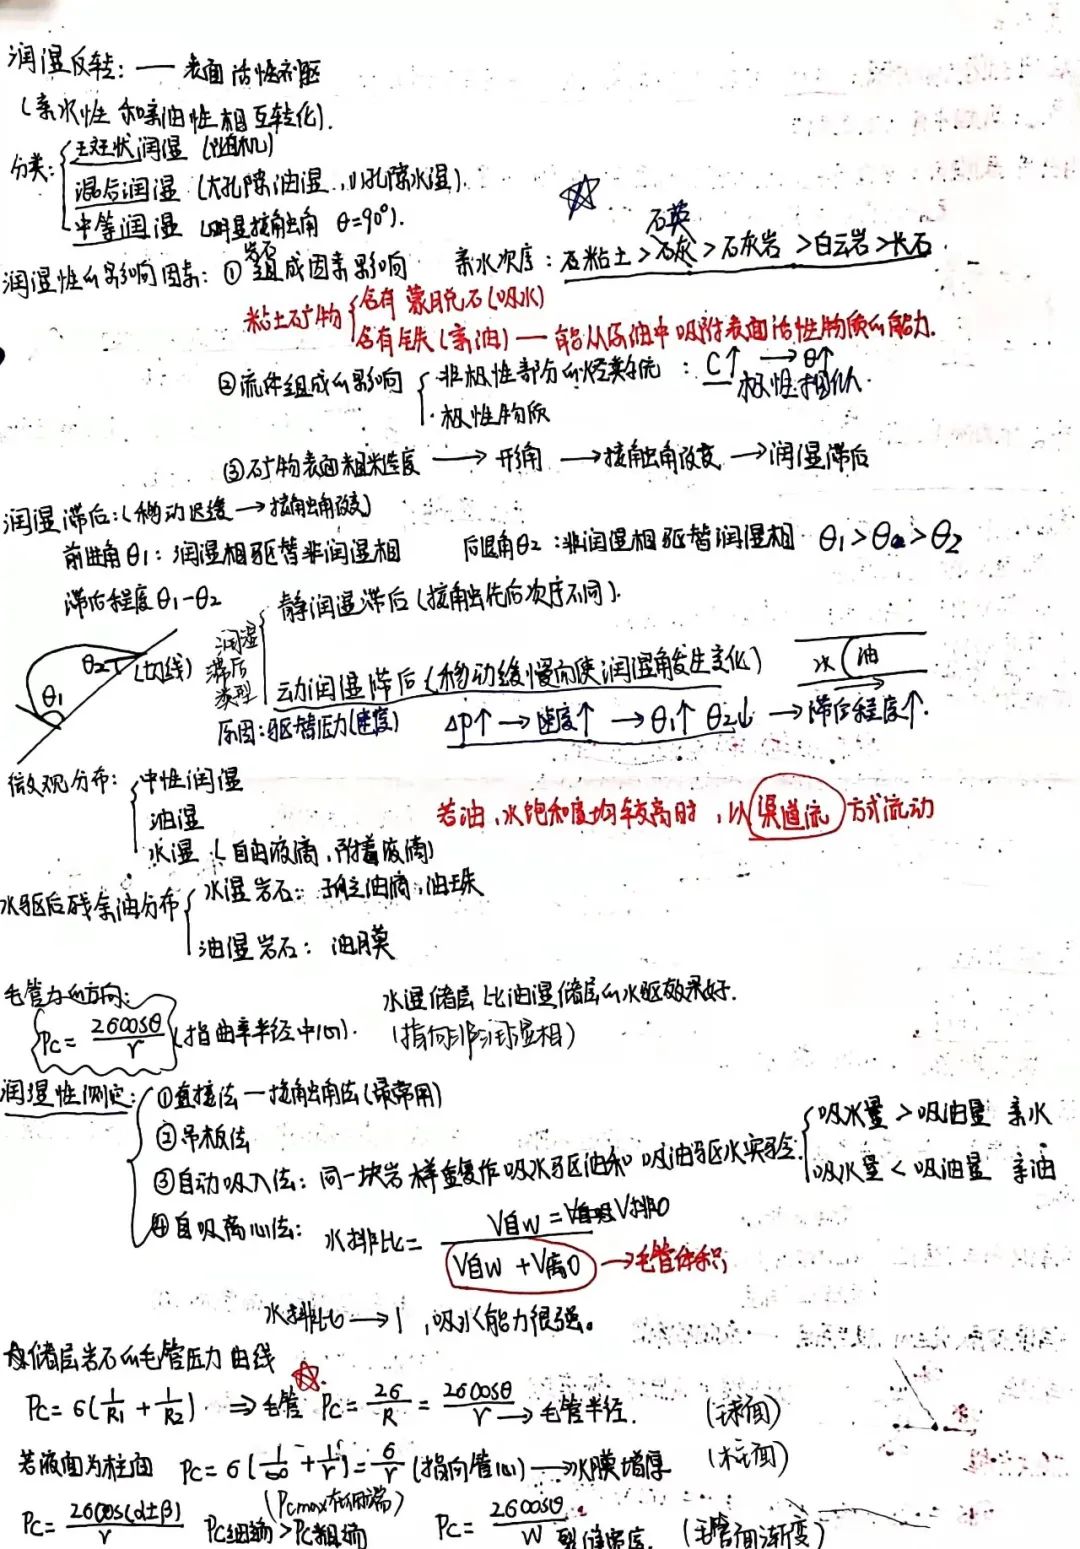 润湿反转：— 表面活性剂驱
(亲水性 和亲油性相互转化).
分类：
斑状润湿 (随机)
混合润湿 (大孔隙油湿，小孔隙水湿).
中等润湿 (明显接触角 θ=90°).
润湿性的影响因素：① 岩石组成因素影响 亲水次序：粘土>石英>石灰岩>白云岩>长石.
粘土矿物
含有 蒙脱石(吸水)
含有铁(亲油) — 能从原油中吸附表面活性物质的能力.
②流体组成的影响
非极性部分的烃类系统 : C↑ → θ↑
·极性物质 极性相似
③矿物表面粗糙度 → 形角 → 接触角改变 → 润湿滞后
润湿滞后：(移动迟缓→接触角改变)
前进角θ1：润湿相驱替非润湿相 后退角θ2：非润湿相驱替润湿相 θ1>θ>θ2
滞后程度θ1-θ2
润湿滞后类型
静润湿滞后 (接触先后次序不同).
θ1 θ2 (切线)
动润湿滞后 (移动缓慢而使润湿角发生变化) 水 油
原因：驱替压力(速度) ΔP↑ → 速度↑ → θ1↑ θ2↓ → 滞后程度↑.
微观分布：
中性润湿
油湿
水湿 (自由液滴，附着液滴)
若油、水饱和度均较高时，以 渠道流 方式流动
水驱后残余油分布
水湿岩石：孤立油滴，油珠
油湿岩石：油膜
毛管力的方向： 水湿储层比油湿储层的水驱效果好.
Pc= 2σcosθ/r (指曲率半径中心). (指向非润湿相)
润湿性测定：
①直接法 — 接触角法(最常用)
②吊板法
③自动吸入法：同一块岩样重复作吸水驱油和吸油驱水实验.
吸水量 > 吸油量 亲水
吸水量 < 吸油量 亲油
④自吸离心法： 水排比= V自w = V排o / V自w + V离o → 毛管体积
水排比→1，吸水能力很强。
储层岩石的毛管压力曲线
Pc= σ(1/R1 + 1/R2) ⇒ 毛管 Pc= 2σ/R = 2σcosθ/r → 毛管半径. (球面)
若液面为柱面 Pc= σ(1/∞ + 1/r)= σ/r (指向管心) → 水膜增厚 (柱面)
(Pcmax在细端)
Pc= 2σcos(α±β)/r Pc细端>Pc粗端 Pc= 2σcosθ/W 裂缝宽度. (毛管间渐变)